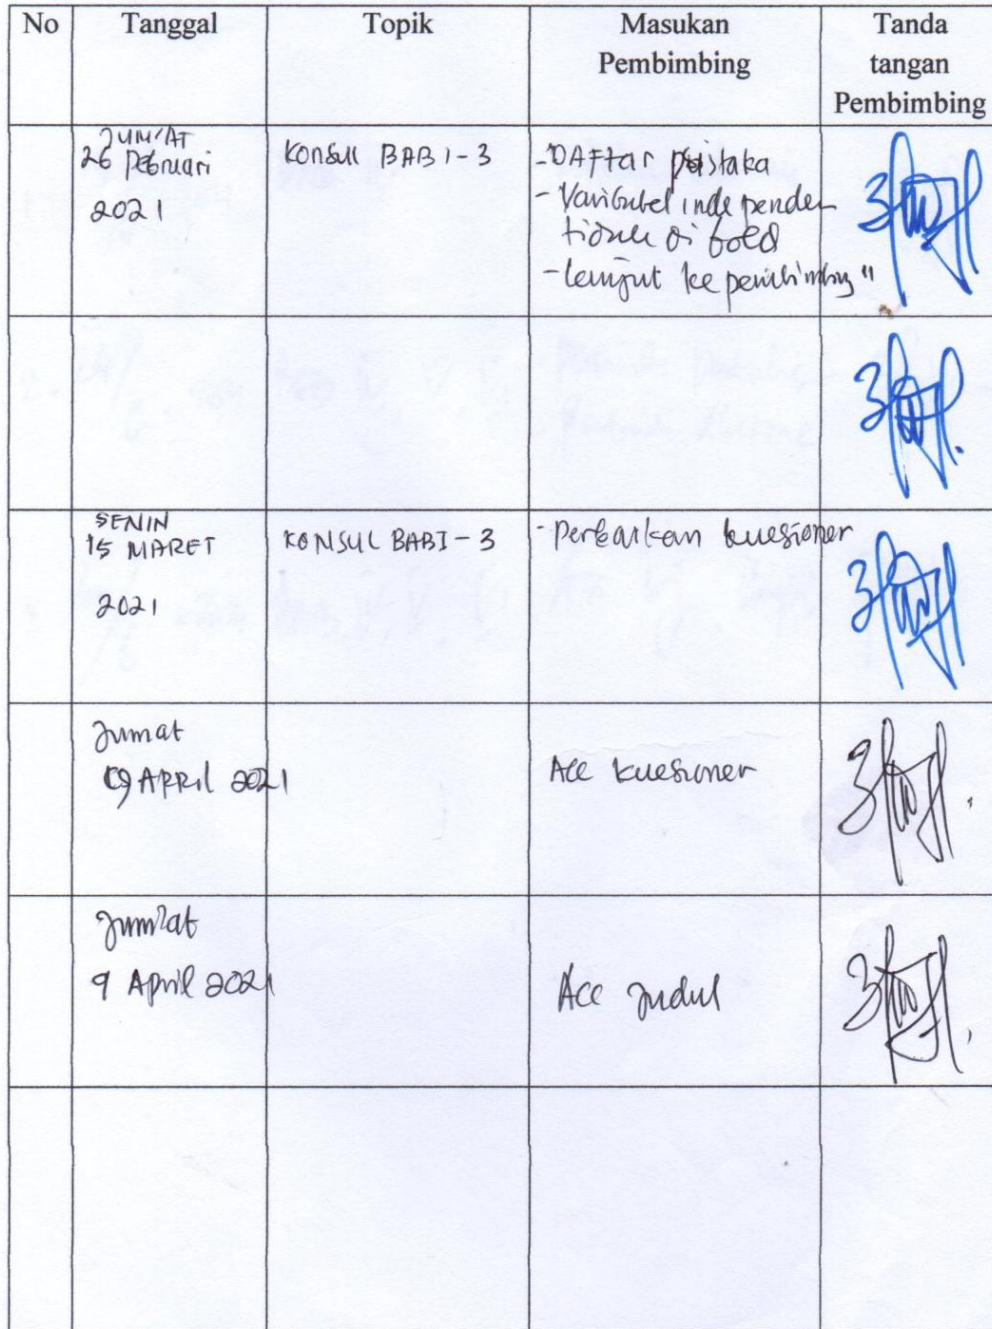 No Tanggal Topik Masukan Pembimbing Tanda tangan Pembimbing
JUM'AT
26 Februari
2021
Konsul BAB 1 - 3
- DAFtar pustaka
- Variabel independen
tidak di bold
- lanjut ke pembimbing "
SENIN
15 MARET
2021
KONSUL BAB I - 3
- Perbaikan kuesioner
Jumat
09 APRIL 2021
Acc kuesioner
Jum'at
9 April 2021
Acc Judul